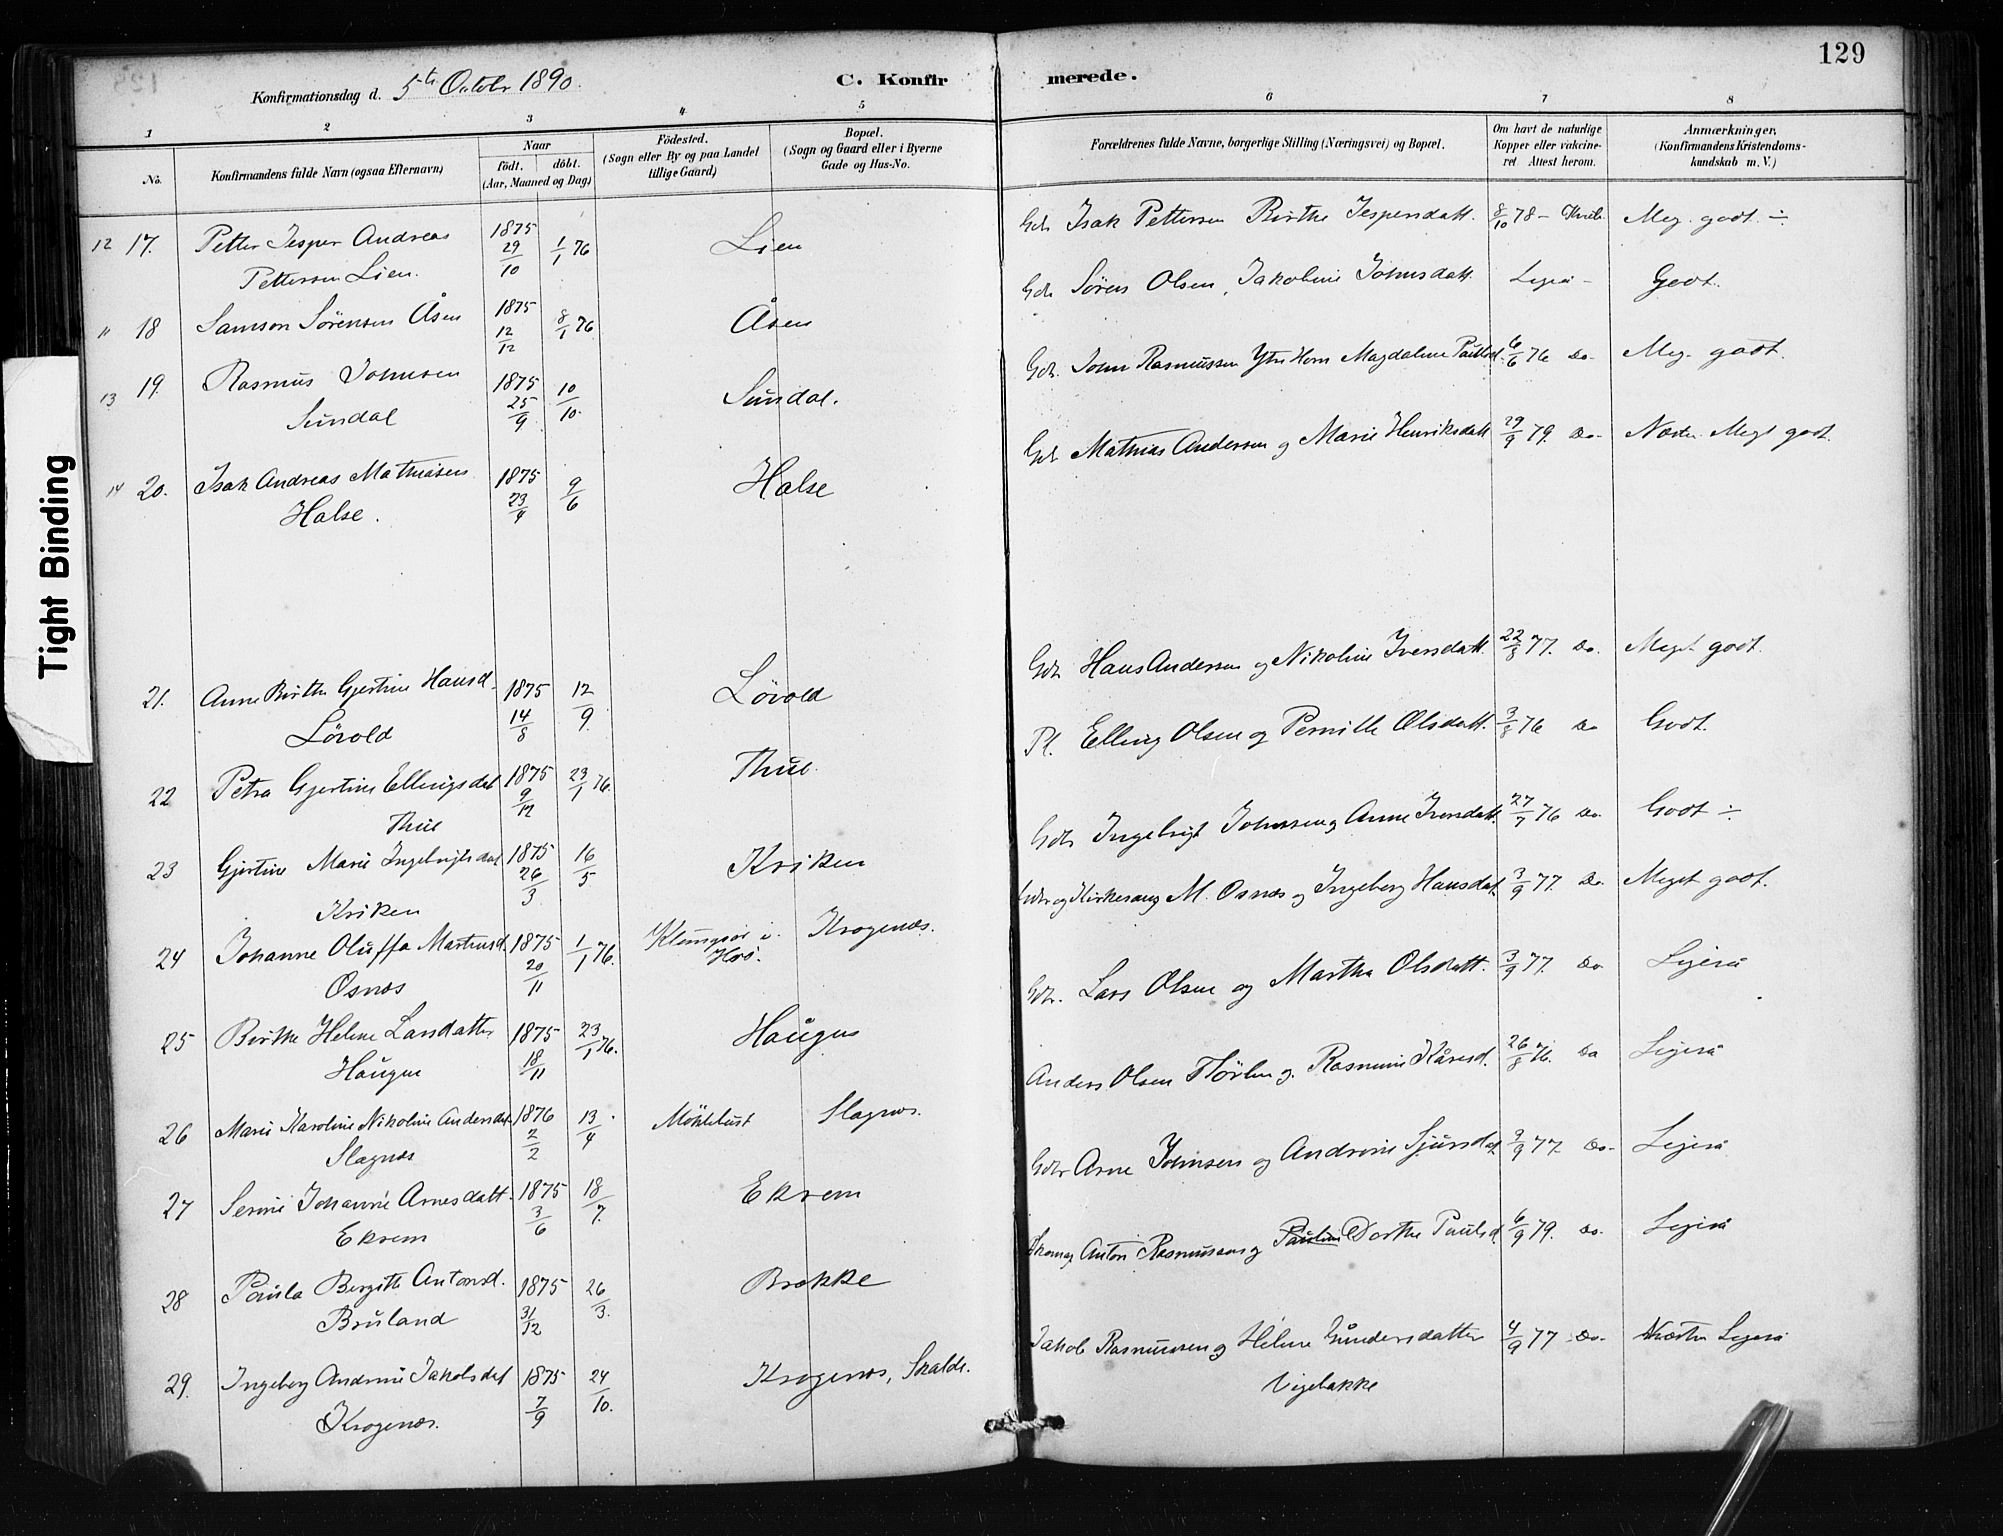 129
Konfirmationsdag d. 5te Octobr 1890.
C. Konfirmerede.
1 2 3 4 5 6 7 8
No.
Konfirmandens fulde Navn (ogsaa Efternavn)
Naar
födt. döbt.
(Aar, Maaned og Dag)
Födested.
(Sogn eller By og paa Landet
tillige Gaard)
Bopæl.
(Sogn og Gaard eller i Byerne
Gade og Hus-No.
Forældrenes fulde Navne, borgerlige Stilling (Næringsvei) og Bopæl.
Om havt de naturlige
Kopper eller vakcine-
ret Attest herom.
Anmærkninger,
(Konfirmandens Kristendoms-
kundskab m. V.)
12 17. Petter Jesper Andreas 1875 29/10 1/1 76 Lien Gdr Isak Pettersen Birthe Jespersdatt. 8/10 78 - Meg. godt ÷
Pettersen Lien.
" 18 Samson Sörensen Åsen 1875 12/12 8/1 76 Åsen Gdr Sörens Olsen, Jakobine Johnsdatt. Ligeså - Godt.
13 19. Rasmus Johnsen 1875 25/9 10/10 Sundal. Gdr. John Rasmussen Ytre Horn Magdalene Paulsd. 6/6 76 Do. Meg. godt.
Sundal
14 20. Isak Andreas Mathiasen 1875 23/4 9/6 Halse Gdr Mathias Andersen og Marie Henriksdatt 29/9 79. Do. Næsten Meget godt.
Halse.
21. Anne Birthe Gjertine Hansd. 1875 14/8 12/9 Lövold Gdr Hans Andersen og Nikoline Iversdatt. 22/8 77. Do. Meget godt.
Lövold
22 Petra Gjertine Ellingsdat 1875 9/12 23/1 76. Thue Pl. Elling Olsen og Pernille Olsdatt. 3/8 76 Do Godt.
Thue
23 Gjertine Marie Ingebrigtsdat 1875 26/3 16/5 Kriken Gdr Ingebrigt Johnsen og Anne Iversdatt. 27/7 76 Do. Godt ÷
Kriken
24 Johanne Oluffa Martinsd. 1875 20/11 1/1 76. Klungsör i Krogenæs. Gdr og Kirkesang. M. Osnæs og Ingeborg Hansdat. 3/9 77. Do. Meget godt.
Osnæs
25 Birthe Helene Larsdatter 1875 18/11 23/1 76. Haugen Gdr. Lars Olsen og Martha Olsdatt. 3/9 77. Do. Ligeså
Haugen
26 Marie Karoline Nikoline Andersdat 1876 2/2 13/4 Möklebust Slagnæs. Anders Olsen og Rasmine Kåresd. 26/8 76. Do Ligeså
Slagnæs
27 Serine Johanne Arnesdatt. 1875 3/6 18/7. Ekrem Gdr Arne Johnsen og Andrine Sjursdat. 3/9 77. Do. Ligeså
Ekrem
28 Paula Bergitte Antonsd. 1875 31/12 26/3. Brække Anton Rasmussen og Pauline Dorthe Paulsd. 6/9 79. Do. Ligeså
Bruland
29. Ingeborg Andrine Jakobsdat 1875 7/9 24/10. Krogenæs, Skalde. Jakob Rasmussen og Helene Gundersdatter 4/9 77 Do. Næsten Ligeså
Krogenæs. Vigebakke
Tight Binding